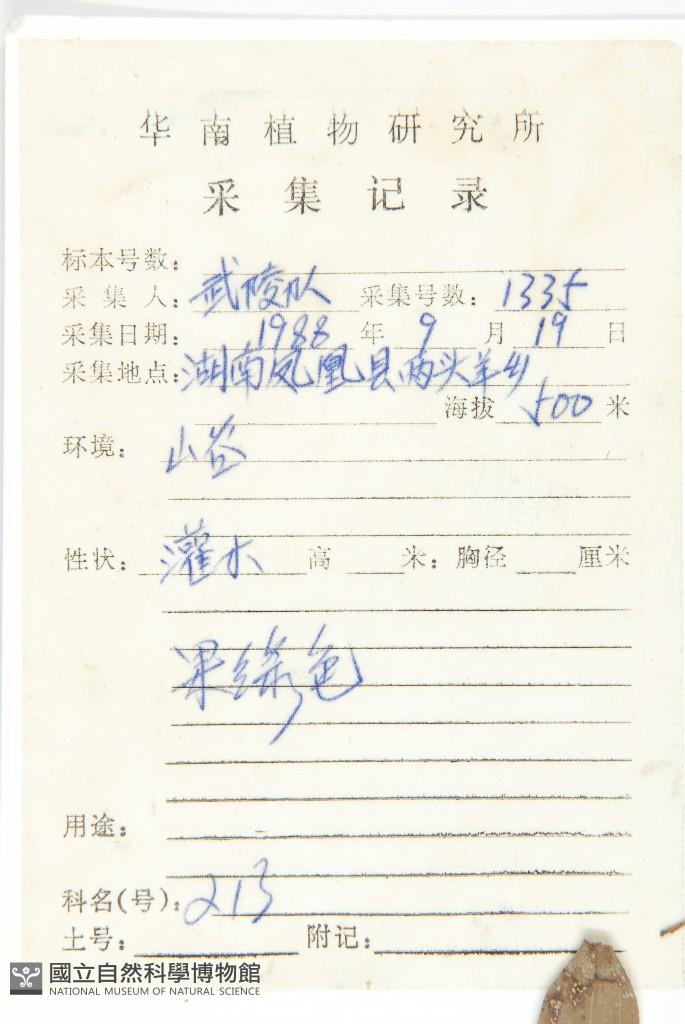 华南植物研究所
采集记录
标本号数：
采集人：武陵队 采集号数：1335
采集日期：1988年9月19日
采集地点：湖南凤凰县两头羊乡
海拔500米
环境：山谷
性状：灌木 高 米：胸径 厘米
果绿色
用途：
科名(号)：213
土号： 附记：
國立自然科學博物館
NATIONAL MUSEUM OF NATURAL SCIENCE